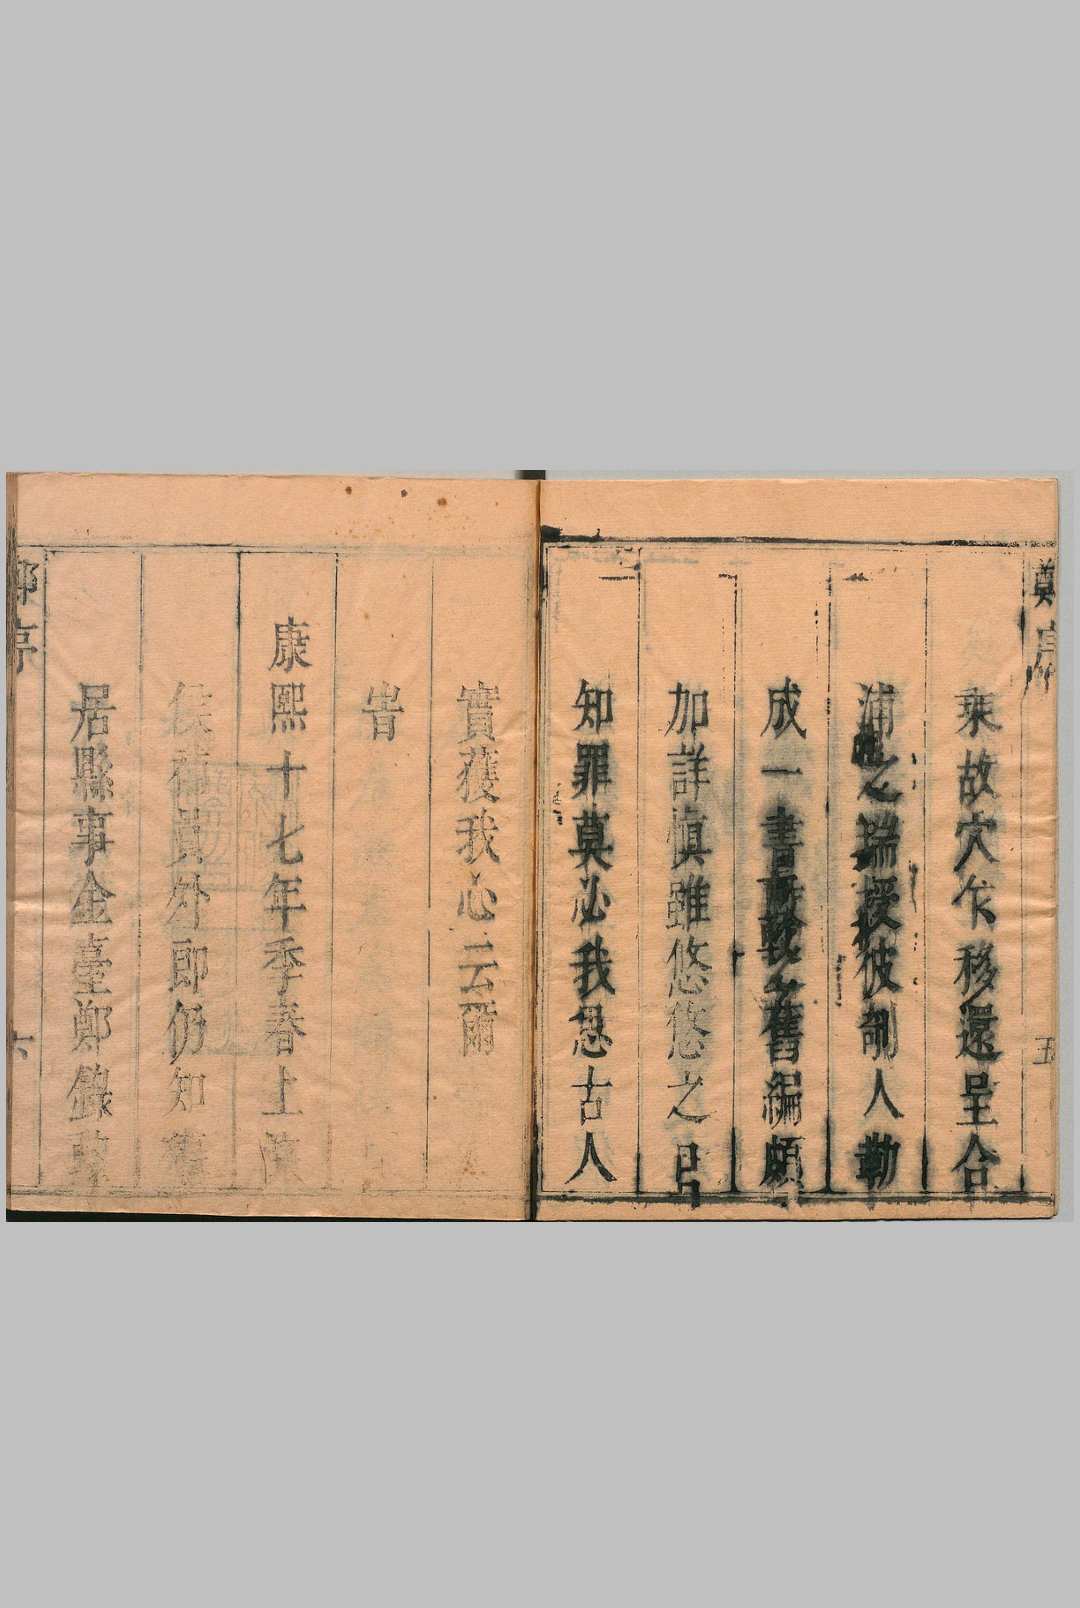 鄭序
五
乘故穴乍移還呈合
浦之瑞授彼剞人勒
成一書較之舊編頗
加詳慎雖悠悠之口
知罪莫必我思古人
實獲我心云爾
旹
康熙十七年季春上
候補員外郎仍知
居縣事金臺鄭錄
鄭序
六